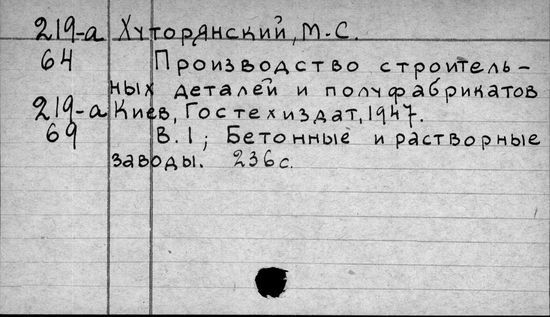 219-а Хуторянский, М-С.
64 Производство строитель-
ных деталей и полуфабрикатов
219-а Киев, Гостехиздат, 1947.
69 В. I; Бетонные и растворные
заводы. 236 с.